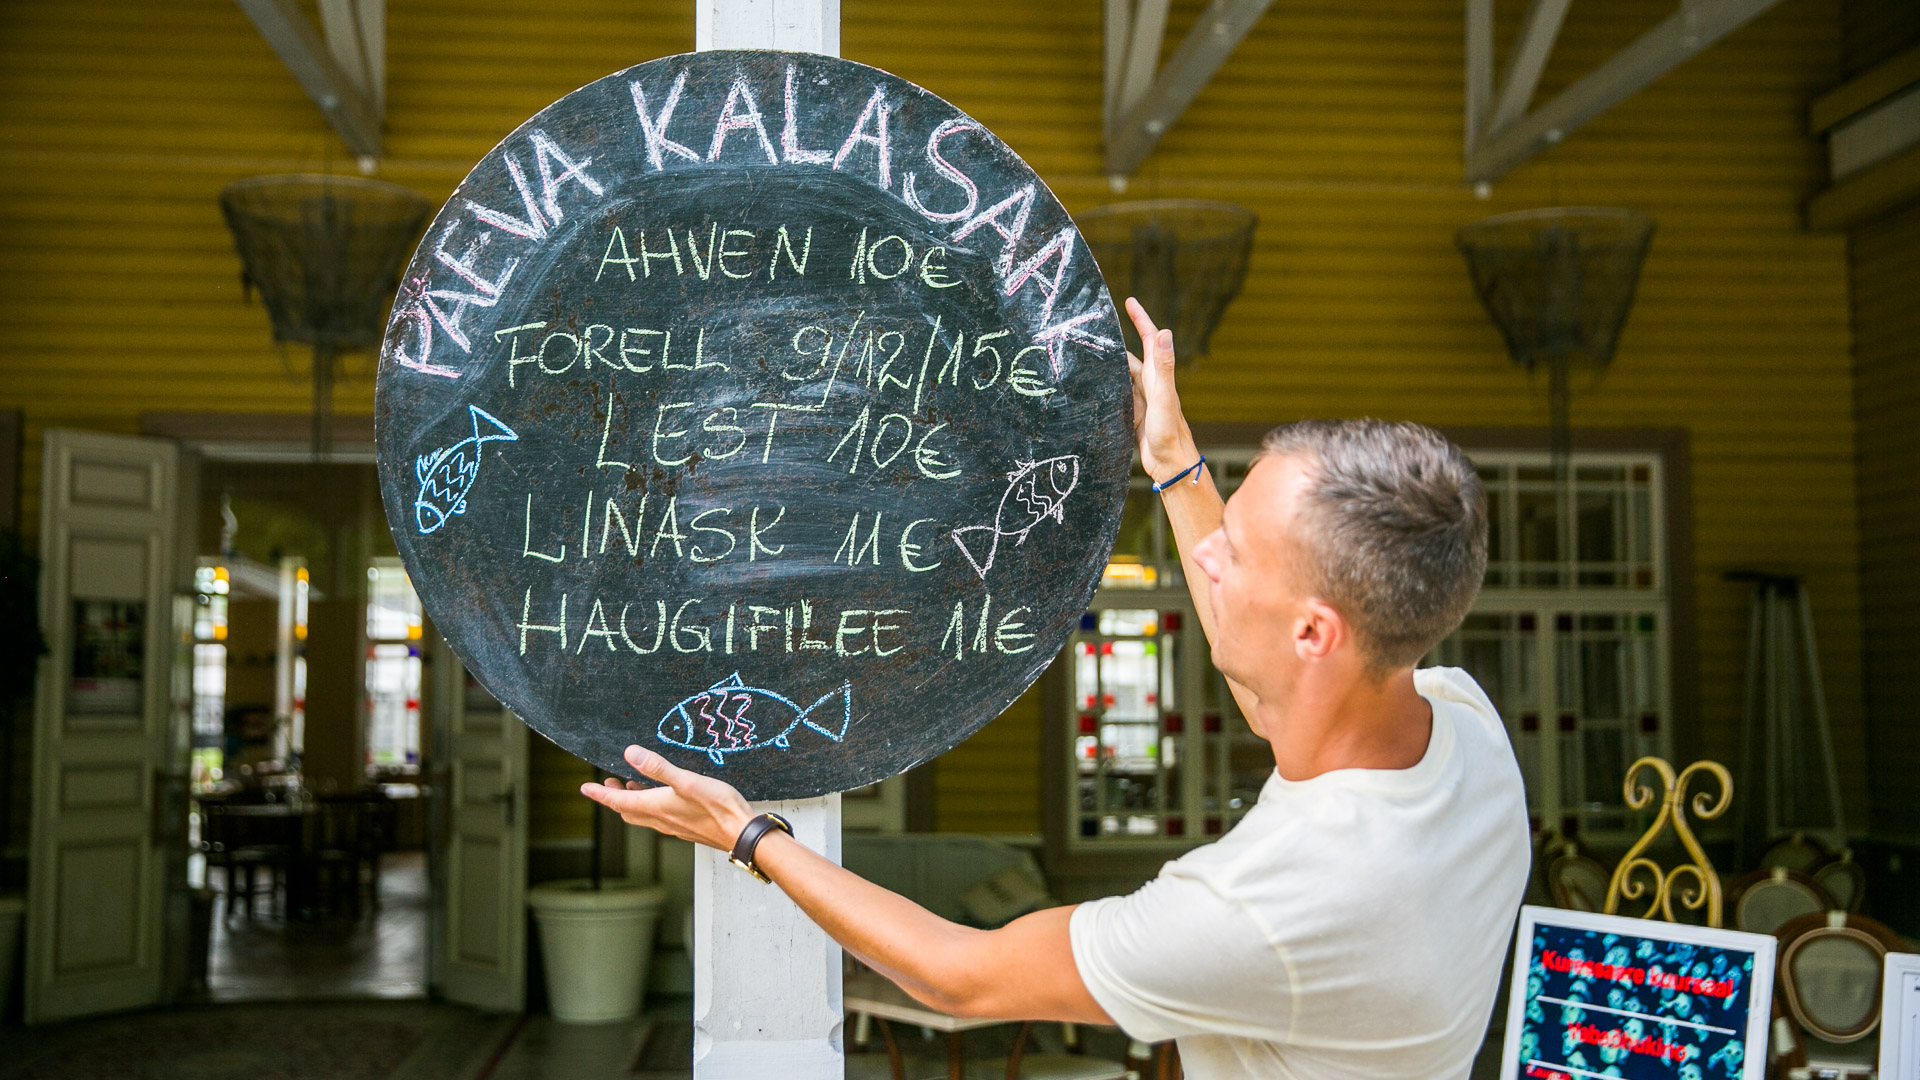 PÄEVA KALASAAK
AHVEN 10€
FORELL 9/12/15€
LEST 10€
LINASK 11€
HAUGIFILEE 11€
Kuressaare kuursaal
Vabaõhukino